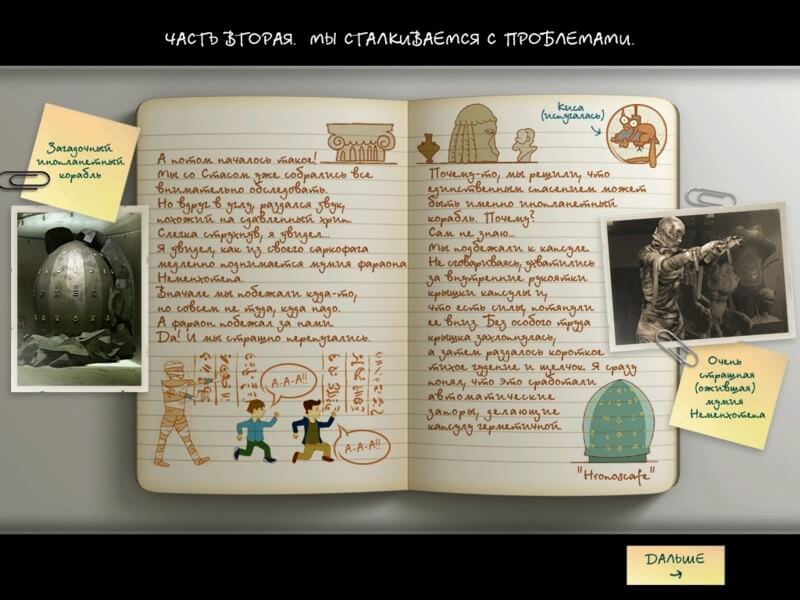 ЧАСТЬ ВТОРАЯ. МЫ СТАЛКИВАЕМСЯ С ПРОБЛЕМАМИ.
Загадочный
инопланетный
корабль
А потом началось такое!
Мы со Стасом уже собрались все
внимательно обследовать.
Но вдруг в углу, раздался звук,
похожий на сдавленный хрип.
Слегка струхнув, я увидел...
Я увидел, как из своего саркофага
медленно поднимается мумия фараона
Неменхотепа.
Вначале мы побежали куда-то,
но совсем не туда, куда надо.
А фараон побежал за нами.
Да! И мы страшно перепугались.
А-А-А!!
А-А-А!!
Киса
(испугалась)
Почему-то, мы решили, что
единственным спасением может
быть именно инопланетный
корабль. Почему?
Сам не знаю...
Мы подбежали к капсуле.
Не сговариваясь, ухватились
за внутренние рукоятки
крышки капсулы и,
что есть силы, потянули
ее вниз. Без особого труда
крышка захлопнулась,
а затем раздалось короткое
тихое гудение и щелчок. Я сразу
понял, что это сработали
автоматические
запоры, делающие
капсулу герметичной.
"Hronoscafe"
Очень
страшная
(ожившая)
мумия
Неменхотепа
ДАЛЬШЕ
→